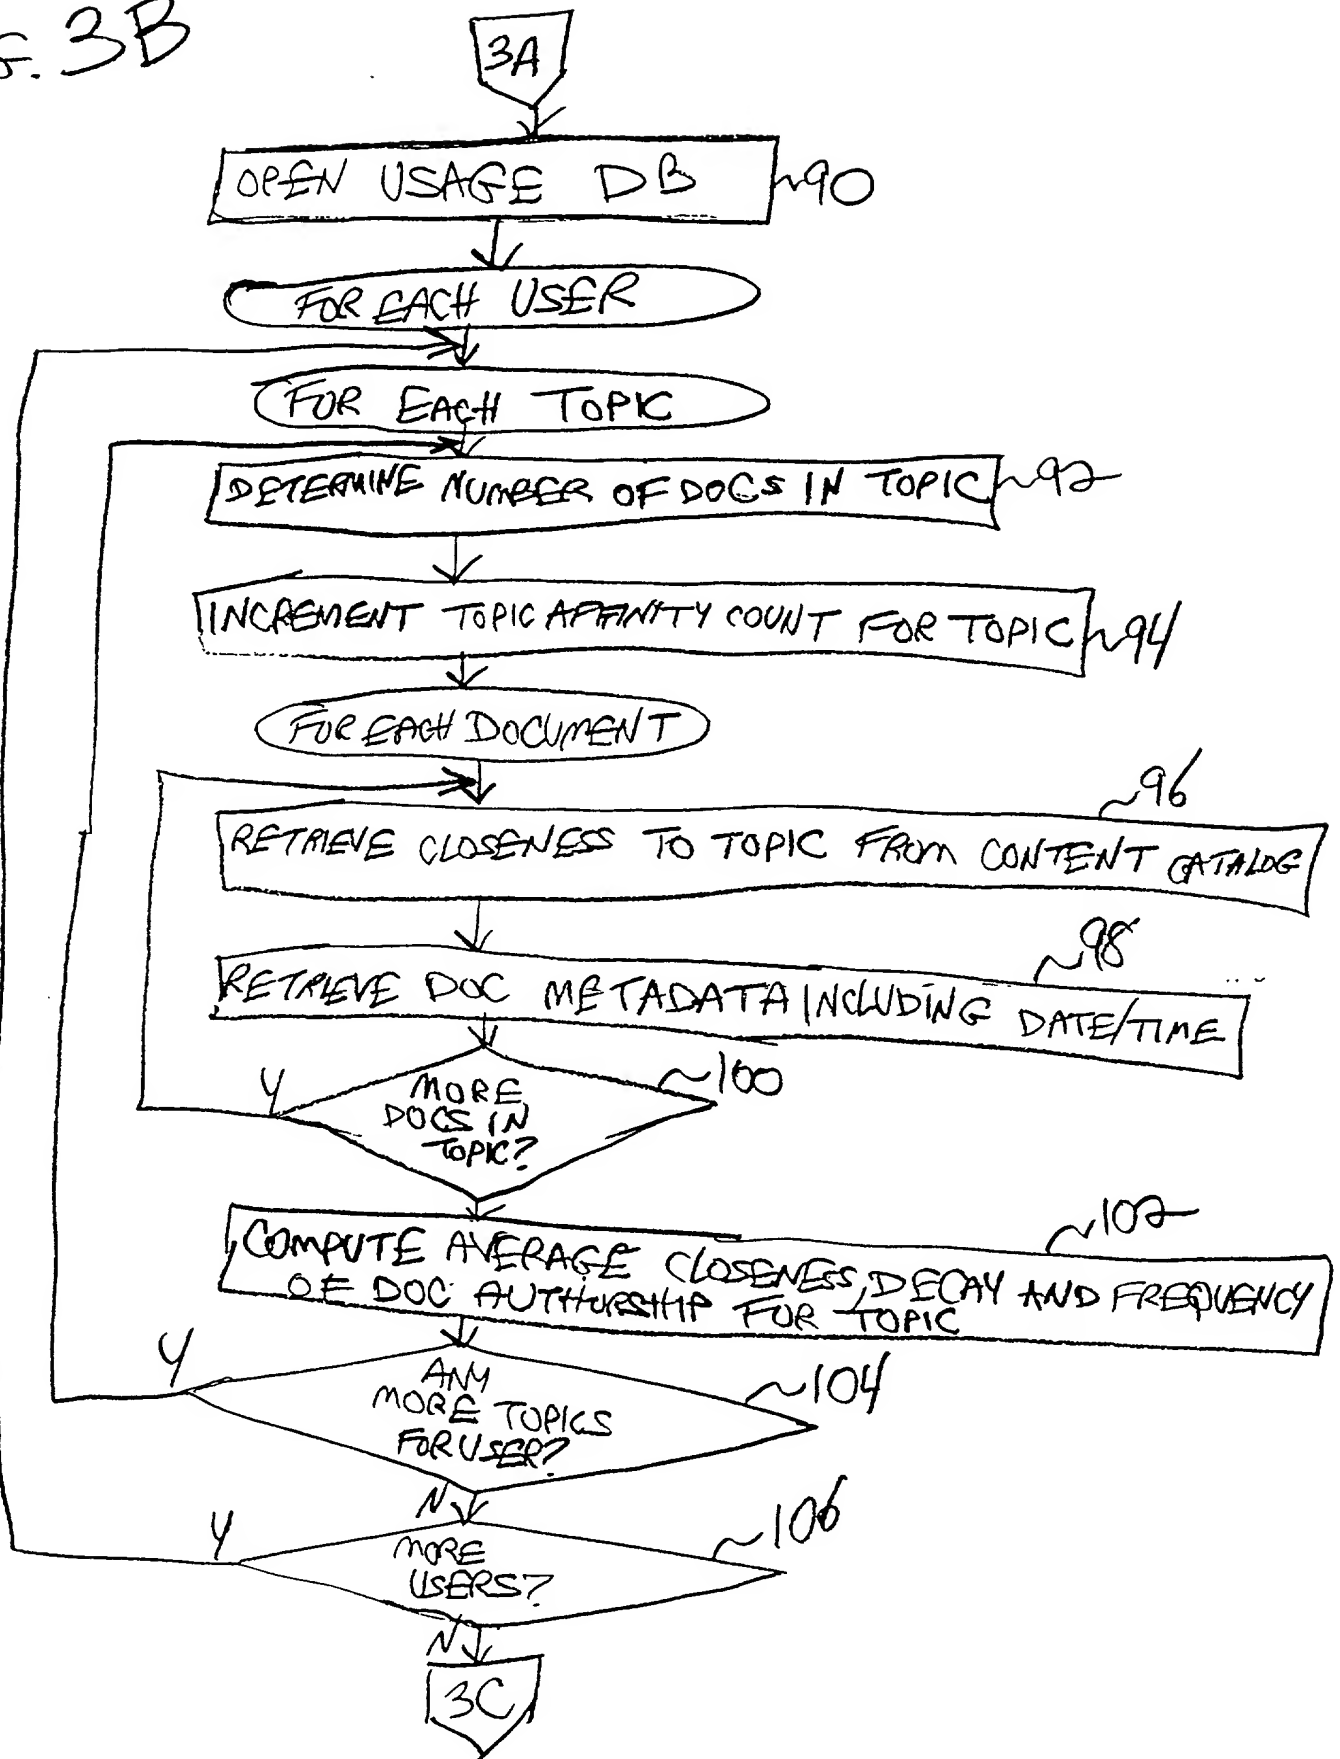 G. 3B
3A
OPEN USAGE DB
90
FOR EACH USER
FOR EACH TOPIC
DETERMINE NUMBER OF DOCS IN TOPIC
92
INCREMENT TOPIC AFFINITY COUNT FOR TOPIC
94
FOR EACH DOCUMENT
96
RETRIEVE CLOSENESS TO TOPIC FROM CONTENT CATALOG
98
RETRIEVE DOC METADATA INCLUDING DATE/TIME
100
Y
MORE
DOCS IN
TOPIC?
102
COMPUTE AVERAGE CLOSENESS, DECAY AND FREQUENCY
OF DOC AUTHORSHIP FOR TOPIC
Y
104
ANY
MORE TOPICS
FOR USER?
N
106
Y
MORE
USERS?
N
3C